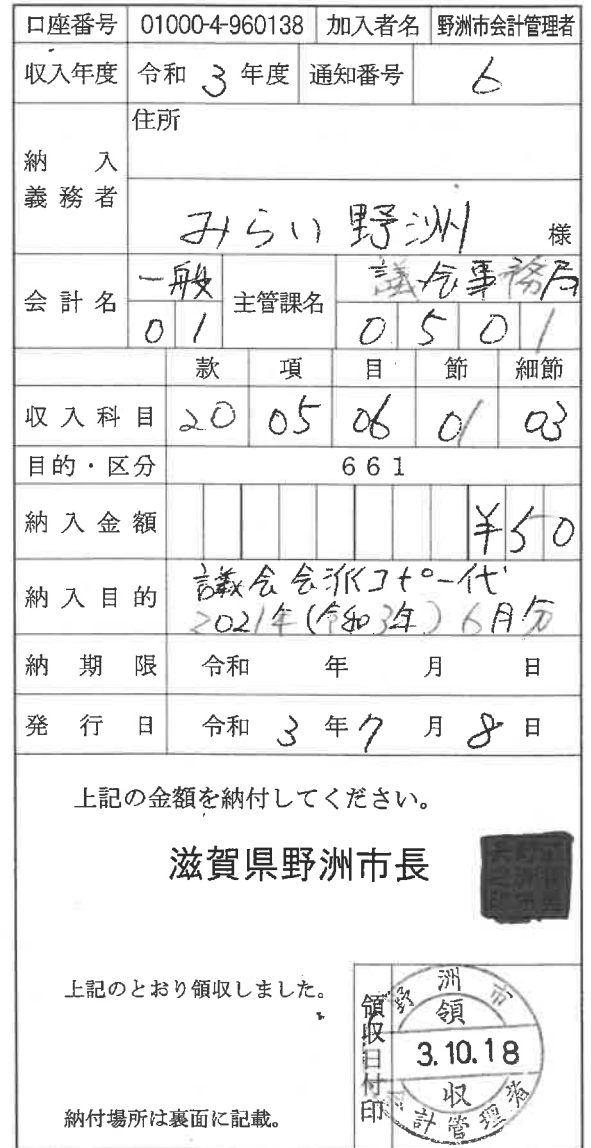 口座番号 01000-4-960138 加入者名 野洲市会計管理者
収入年度 令和 3 年度 通知番号 6
住所
納入義務者
みらい野洲 様
会計名 一般 主管課名 議会事務局
01 0501
款 項 目 節 細節
収入科目 20 05 06 01 03
目的・区分 661
納入金額 ¥50
納入目的 議会会派コピー代
2021年(令和3年)6月分
納期限 令和 年 月 日
発行日 令和 3 年 7 月 8 日
上記の金額を納付してください。
滋賀県野洲市長
上記のとおり領収しました。
領収日付印
野洲市
領
3.10.18
収
会計管理者
納付場所は裏面に記載。